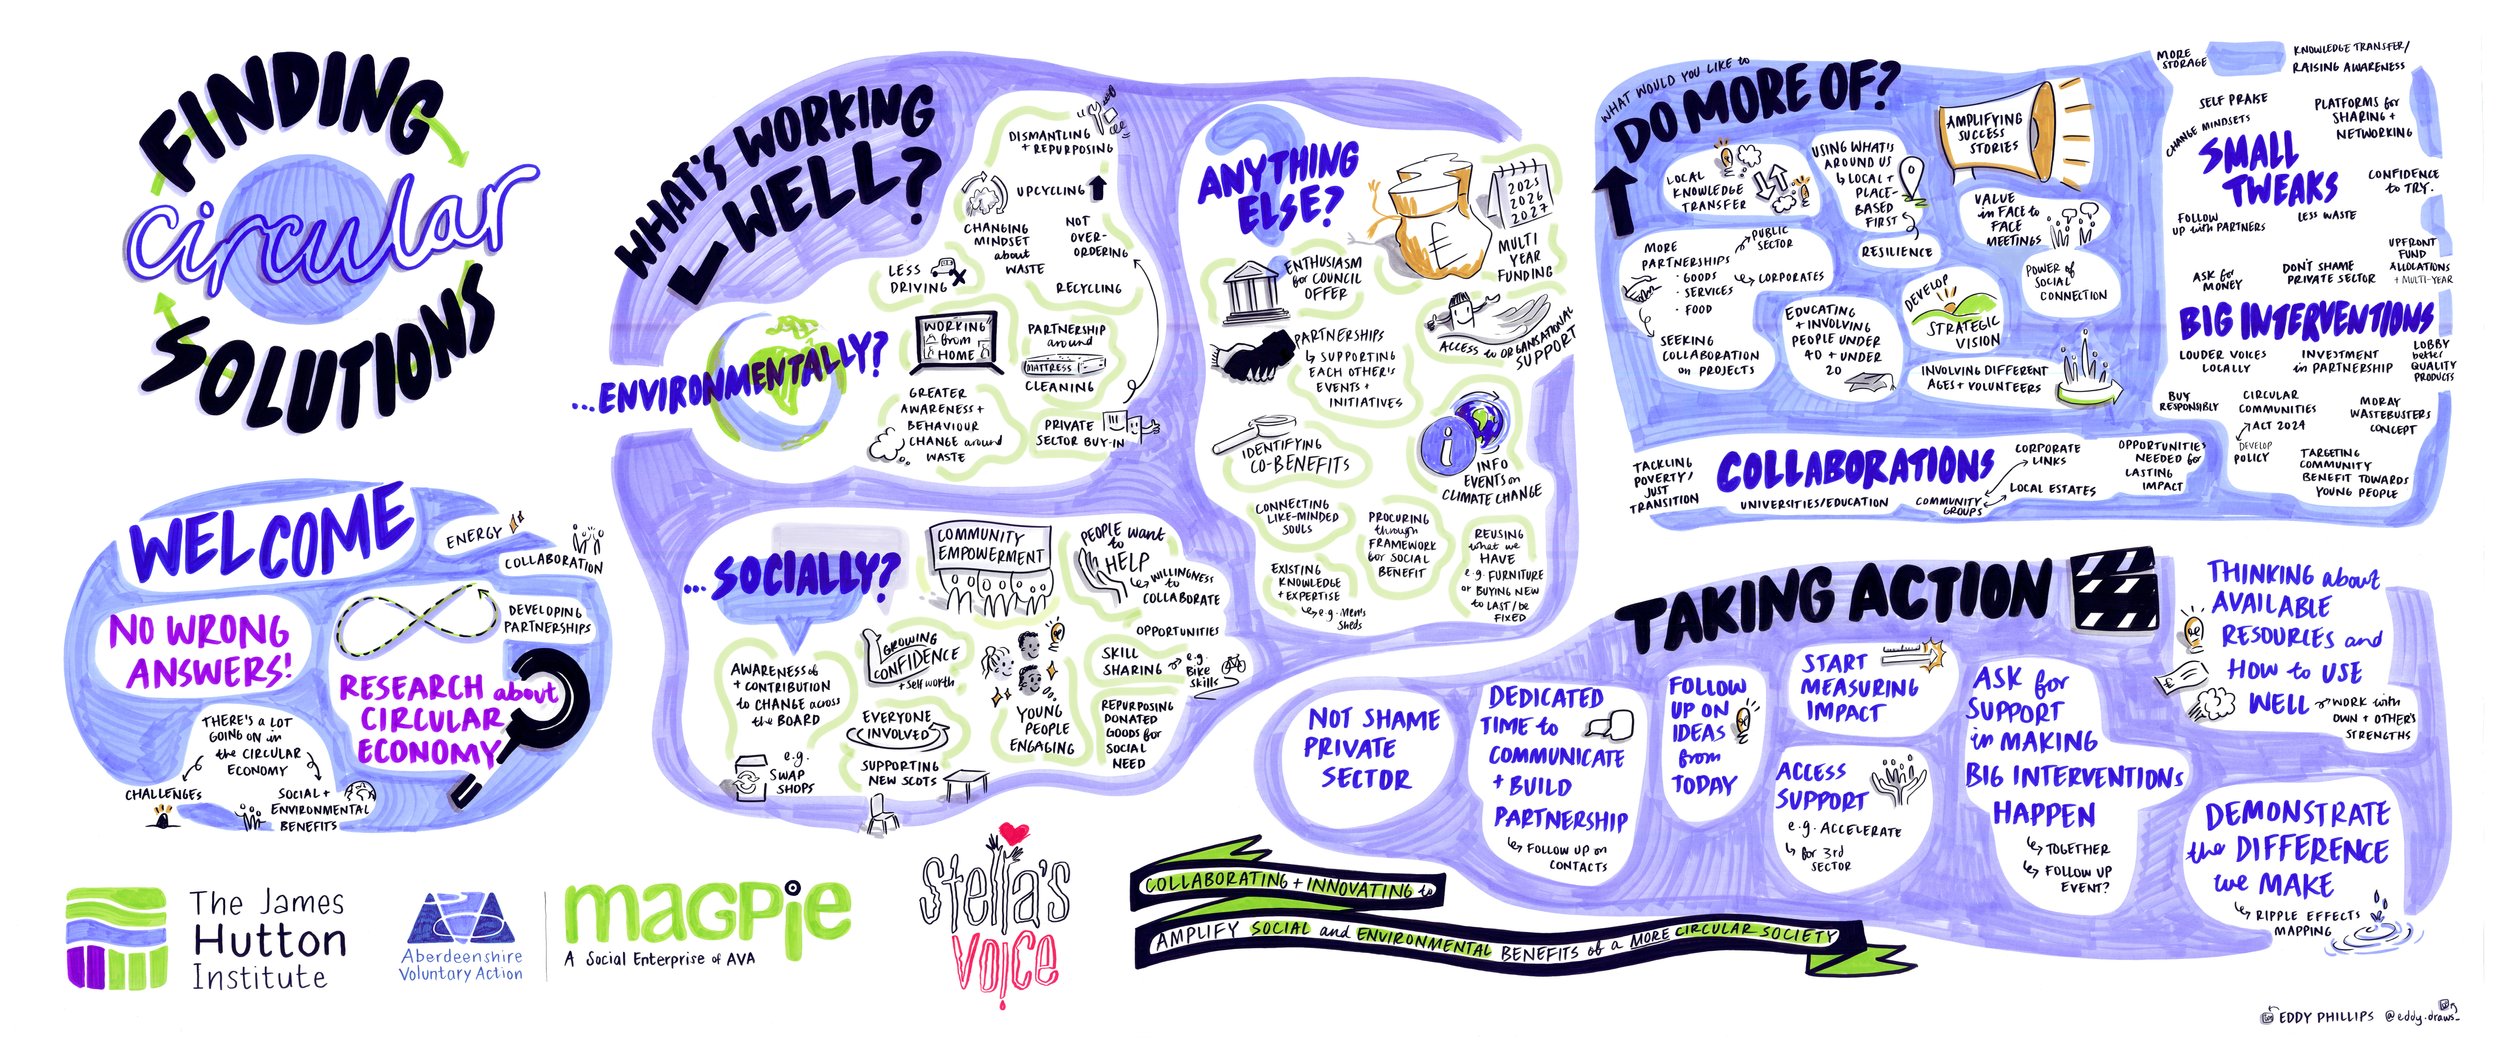 FINDING
circular
SOLUTIONS
WELCOME
ENERGY
COLLABORATION
NO WRONG
ANSWERS!
DEVELOPING
PARTNERSHIPS
RESEARCH about
CIRCULAR
ECONOMY
THERE'S A LOT
GOING ON in
the CIRCULAR
ECONOMY
CHALLENGES
SOCIAL +
ENVIRONMENTAL
BENEFITS
The James
Hutton
Institute
Aberdeenshire
Voluntary Action
magpie
A Social Enterprise of AVA
Stella's
VOICE
WHAT'S WORKING
WELL?
...ENVIRONMENTALLY?
DISMANTLING
+ REPURPOSING
UPCYCLING
CHANGING
MINDSET
about
WASTE
NOT
OVER-
ORDERING
LESS
DRIVING
RECYCLING
WORKING
from
HOME
PARTNERSHIP
around
MATTRESS
CLEANING
GREATER
AWARENESS +
BEHAVIOUR
CHANGE around
WASTE
PRIVATE
SECTOR BUY-IN
...SOCIALLY?
COMMUNITY
EMPOWERMENT
PEOPLE want
to
HELP
WILLINGNESS
to
COLLABORATE
AWARENESS of
+ CONTRIBUTION
to CHANGE across
the BOARD
e.g.
SWAP
SHOPS
GROWING
CONFIDENCE
+ self worth
EVERYONE
INVOLVED
SUPPORTING
NEW SCOTS
YOUNG
PEOPLE
ENGAGING
OPPORTUNITIES
SKILL
SHARING
e.g.
Bike
skills
REPURPOSING
DONATED
GOODS for
SOCIAL
NEED
ANYTHING
ELSE?
£
2025
2026
2027
MULTI
YEAR
FUNDING
ENTHUSIASM
for COUNCIL
OFFER
ACCESS to ORGANISATIONAL
SUPPORT
PARTNERSHIPS
SUPPORTING
EACH OTHER'S
EVENTS +
INITIATIVES
IDENTIFYING
CO-BENEFITS
i
INFO
EVENTS on
CLIMATE CHANGE
CONNECTING
LIKE-MINDED
SOULS
PROCURING
through
FRAMEWORK
for SOCIAL
BENEFIT
REUSING
what we
HAVE
e.g. FURNITURE
or BUYING NEW
to LAST/be
FIXED
EXISTING
KNOWLEDGE
+ EXPERTISE
e.g. Men's
sheds
WHAT WOULD YOU LIKE to
DO MORE OF?
LOCAL
KNOWLEDGE
TRANSFER
USING WHAT'S
AROUND US
LOCAL +
PLACE-
BASED
FIRST
RESILIENCE
AMPLIFYING
SUCCESS
STORIES
VALUE
in FACE to
FACE
MEETINGS
MORE
PARTNERSHIPS
· GOODS
· SERVICES
· FOOD
PUBLIC
SECTOR
CORPORATES
SEEKING
COLLABORATION
on PROJECTS
EDUCATING
+ INVOLVING
PEOPLE UNDER
40 + UNDER
20
DEVELOP
STRATEGIC
VISION
POWER of
SOCIAL
CONNECTION
INVOLVING DIFFERENT
AGES + VOLUNTEERS
MORE
STORAGE
KNOWLEDGE TRANSFER/
RAISING AWARENESS
SELF PRAISE
PLATFORMS for
SHARING +
NETWORKING
CHANGE MINDSETS
SMALL
TWEAKS
CONFIDENCE
to TRY.
FOLLOW
UP with PARTNERS
LESS WASTE
ASK for
MONEY
DON'T SHAME
PRIVATE SECTOR
UPFRONT
FUND
ALLOCATIONS
+ MULTI-YEAR
BIG INTERVENTIONS
LOUDER VOICES
LOCALLY
INVESTMENT
in PARTNERSHIP
LOBBY
better
QUALITY
PRODUCTS
BUY
RESPONSIBLY
CIRCULAR
COMMUNITIES
ACT 2024
DEVELOP
POLICY
MORAY
WASTEBUSTERS
CONCEPT
TARGETING
COMMUNITY
BENEFIT TOWARDS
YOUNG PEOPLE
TACKLING
POVERTY/
JUST
TRANSITION
COLLABORATIONS
UNIVERSITIES/EDUCATION
COMMUNITY
GROUPS
CORPORATE
LINKS
LOCAL ESTATES
OPPORTUNITIES
NEEDED for
LASTING
IMPACT
TAKING ACTION
NOT SHAME
PRIVATE
SECTOR
DEDICATED
TIME to
COMMUNICATE
+ BUILD
PARTNERSHIP
FOLLOW UP on
CONTACTS
FOLLOW
UP ON
IDEAS
from
TODAY
START
MEASURING
IMPACT
ACCESS
SUPPORT
e.g. ACCELERATE
for 3rd
SECTOR
ASK for
SUPPORT
in MAKING
BIG INTERVENTIONS
HAPPEN
TOGETHER
FOLLOW UP
EVENT?
THINKING about
AVAILABLE
RESOURCES and
HOW to USE
WELL
WORK with
OWN + OTHER'S
STRENGTHS
£
DEMONSTRATE
the DIFFERENCE
we MAKE
RIPPLE EFFECTS
MAPPING
COLLABORATING + INNOVATING to
AMPLIFY SOCIAL and ENVIRONMENTAL BENEFITS of a MORE CIRCULAR SOCIETY
EDDY PHILLIPS @eddy.draws_